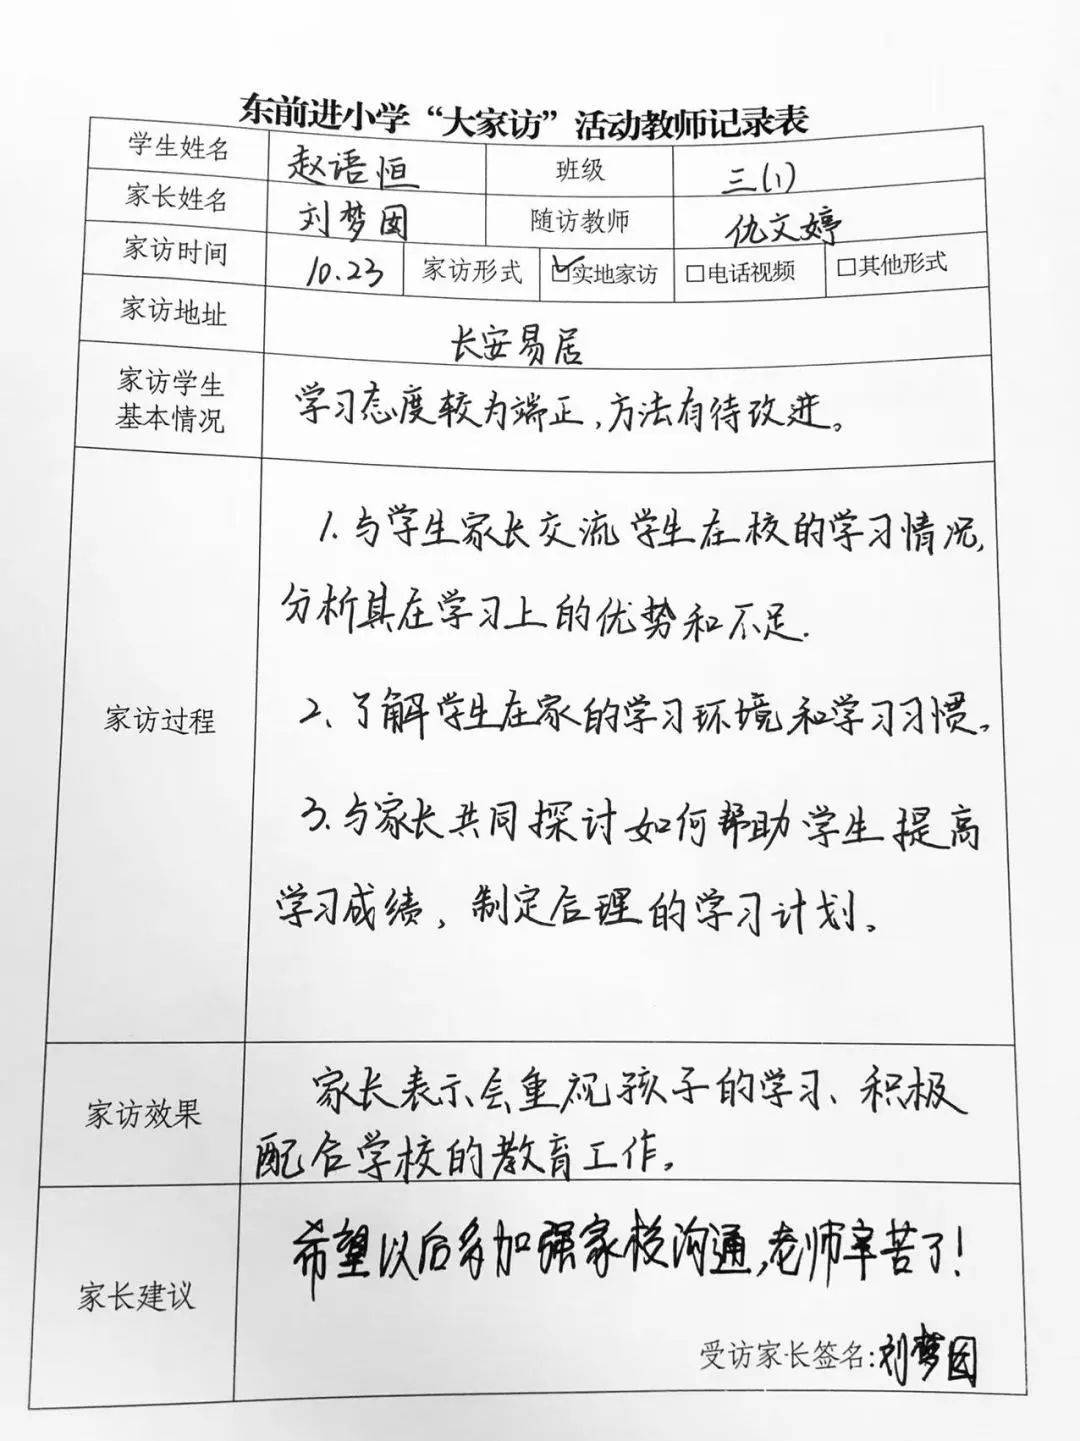 东前进小学“大家访”活动教师记录表
学生姓名 赵语恒 班级 三(1)
家长姓名 刘梦囡 随访教师 仇文婷
家访时间 10.23 家访形式 ☑实地家访 □电话视频 □其他形式
家访地址 长安易居
家访学生
基本情况
学习态度较为端正,方法有待改进。
家访过程
1.与学生家长交流学生在校的学习情况,
分析其在学习上的优势和不足.
2、了解学生在家的学习环境和学习习惯。
3.与家长共同探讨如何帮助学生提高
学习成绩,制定合理的学习计划。
家访效果
家长表示会重视孩子的学习、积极
配合学校的教育工作。
家长建议
希望以后多加强家校沟通,老师辛苦了!
受访家长签名:刘梦囡